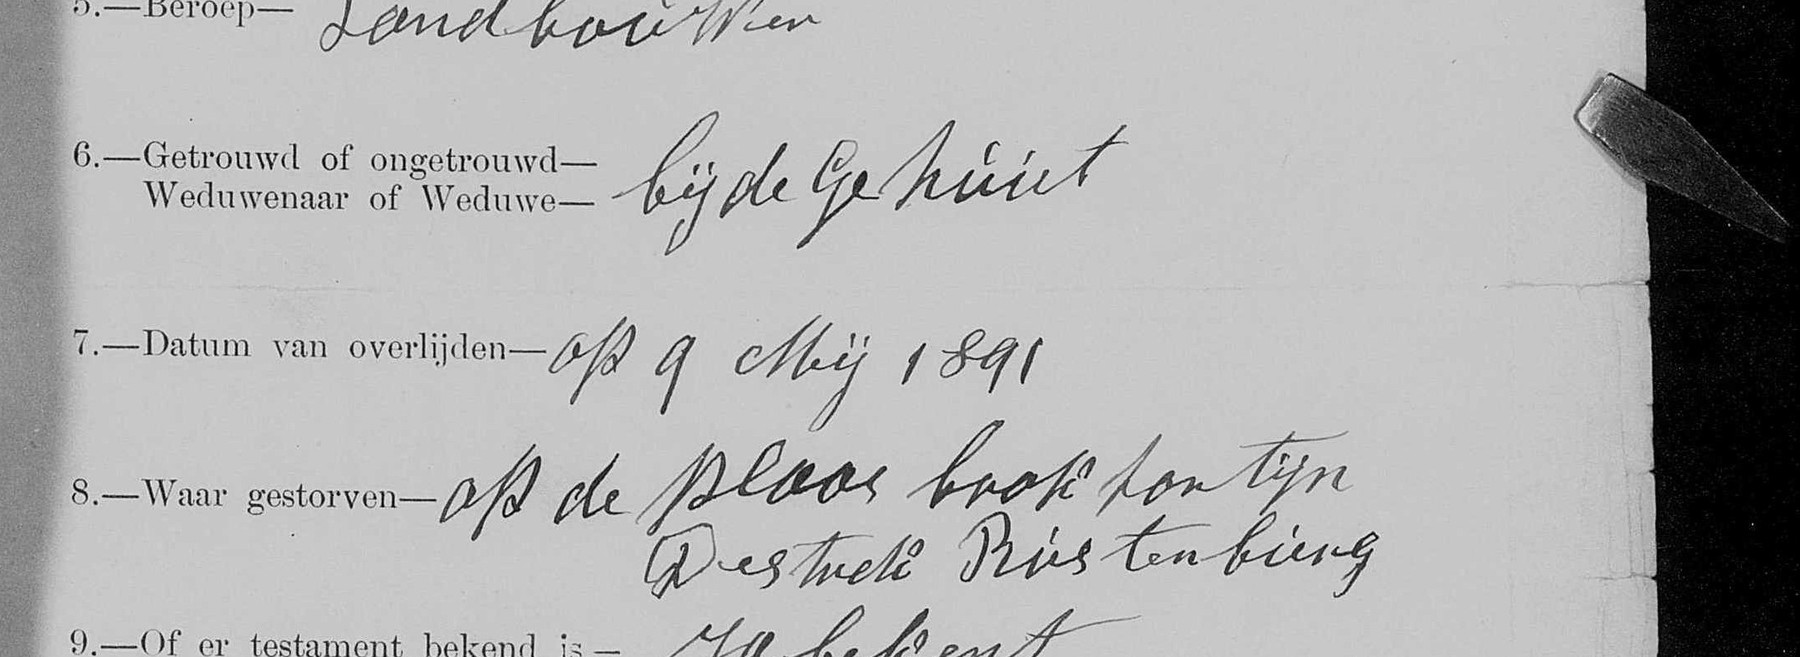 5.—Beroep— Landbouwer
6.—Getrouwd of ongetrouwd—
Weduwenaar of Weduwe— bijde Gehúut
7.—Datum van overlijden— op 9 Mij 1891
8.—Waar gestorven— op de plaas brok fontijn
Destrek Rústenbúrg
9.—Of er testament bekend is— Ja bekent